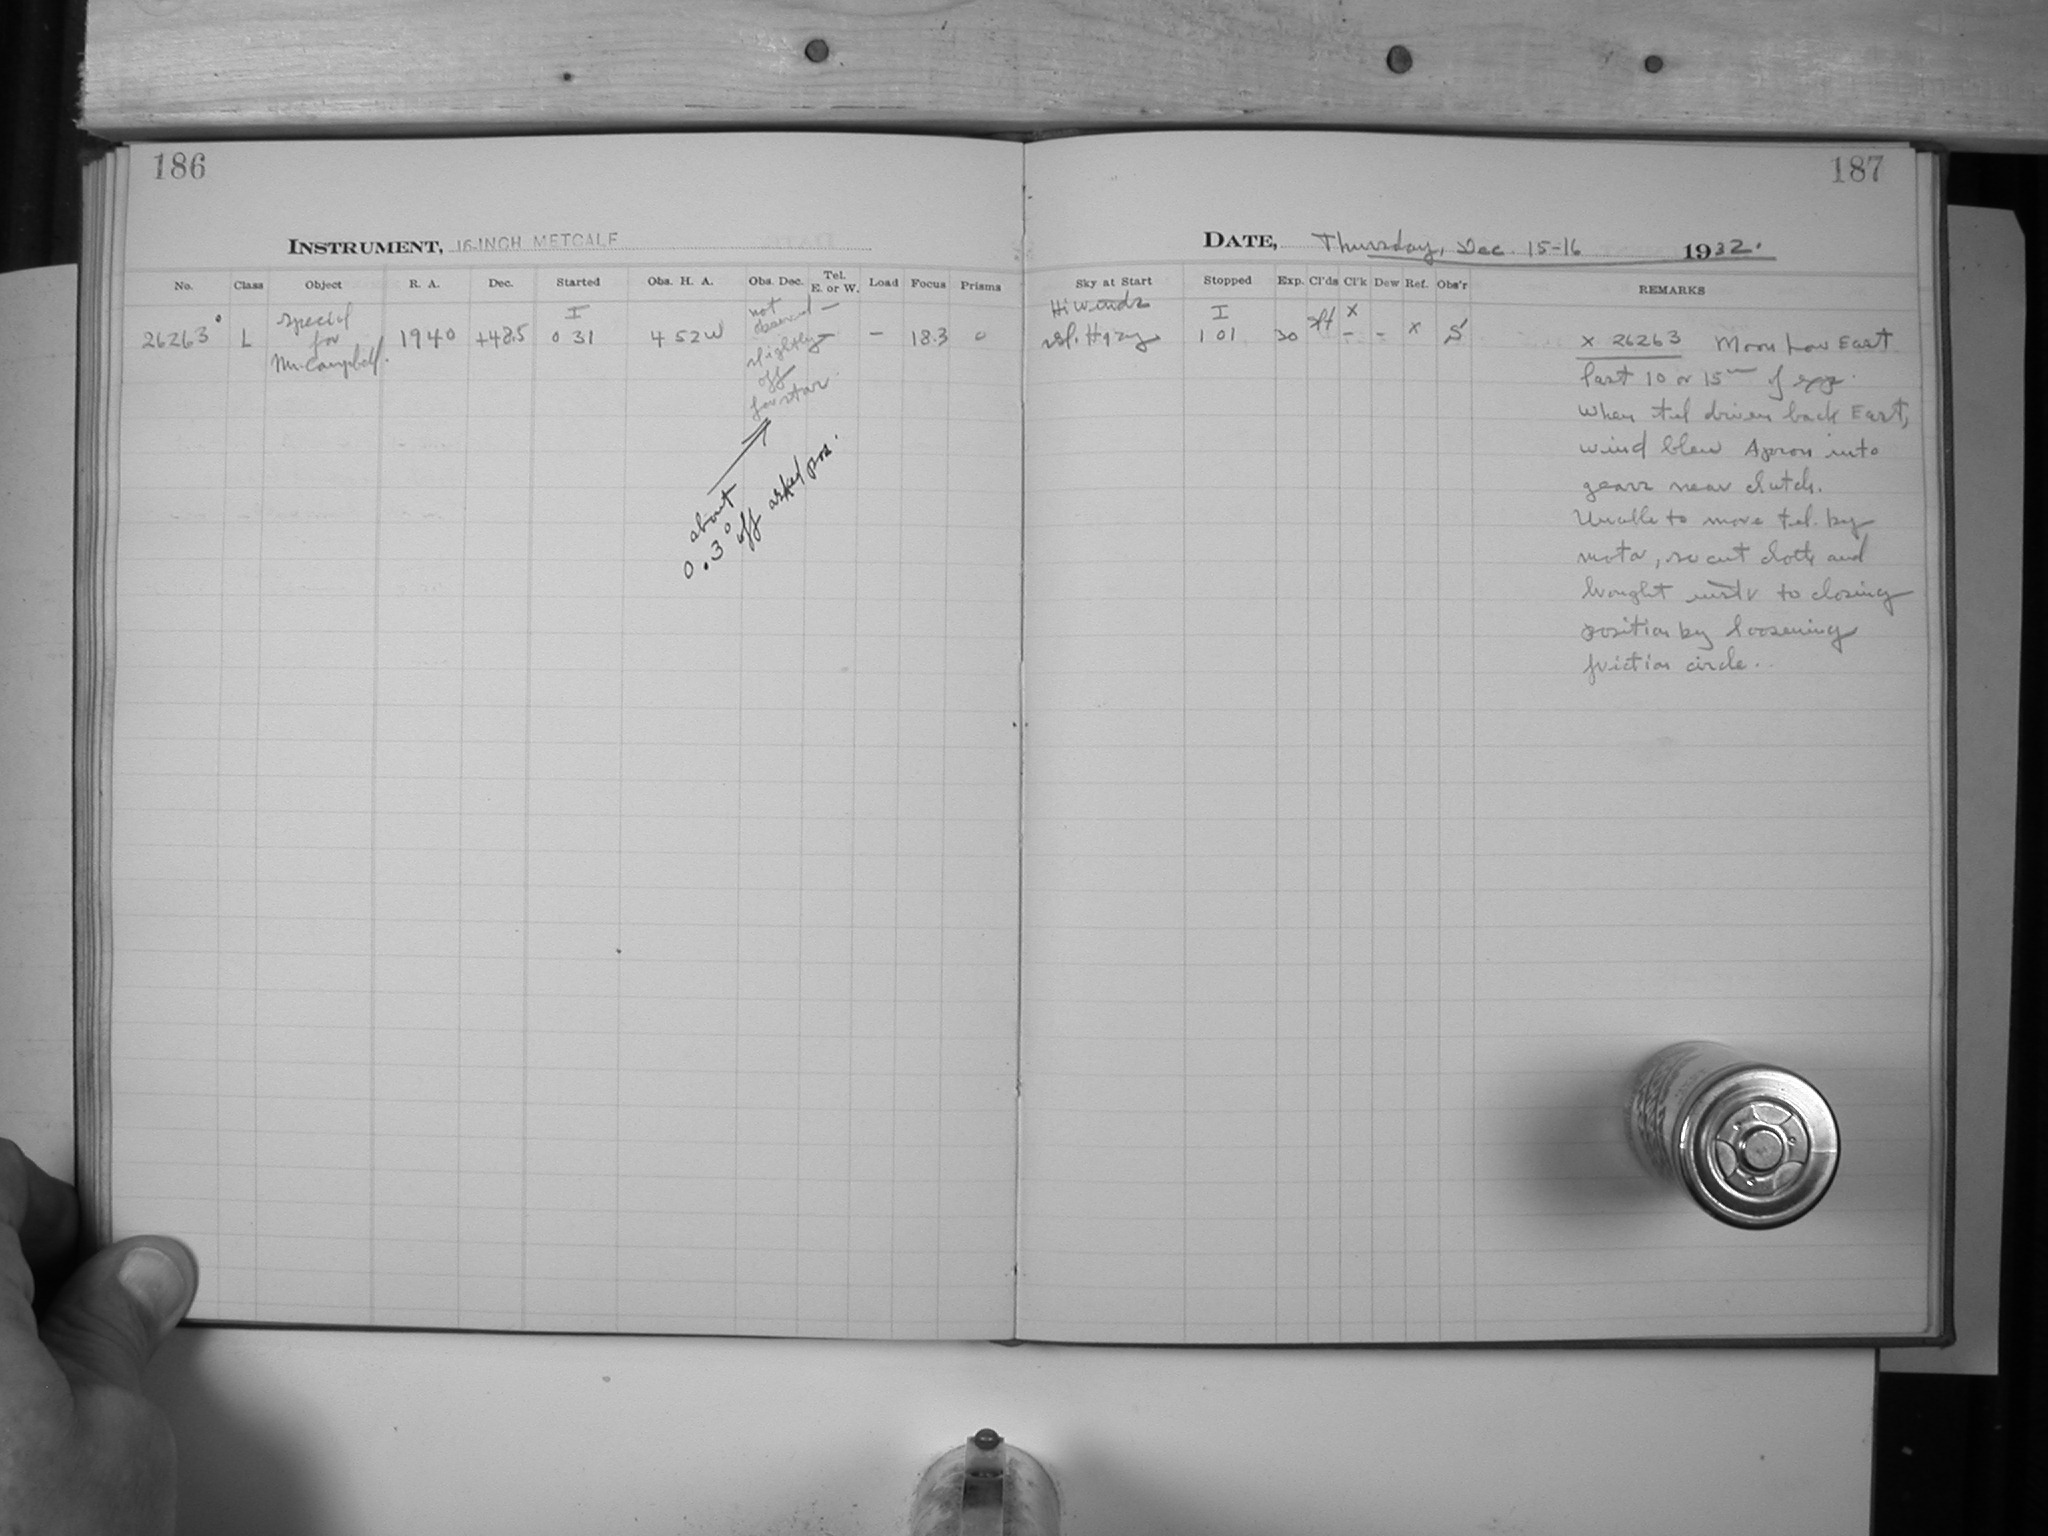 186
INSTRUMENT, 16-INCH METCALF
No. Class Object R. A. Dec. Started Obs. H. A. Obs. Dec. Tel. E. or W. Load Focus Prisms
26263° L special for Mr. Campbell. 1940 +48.5 I 0 31 4 52 W not observed slightly off for star. — — — 18.3 0
about
0.3° off asked pos.
187
DATE, Thursday, Dec 15-16 1932.
Sky at Start Stopped Exp. Cl'ds Cl'k Dew Ref. Obs'r REMARKS
Hi winds
sl. Hazy I 1 01 30 x – – x S
x 26263 Moon low East
last 10 or 15m of exp.
When tel driven back East,
wind blew Apron into
gears near clutch.
Unable to move tel. by
motor, so cut cloth and
brought instr to closing
position by loosening
friction circle.